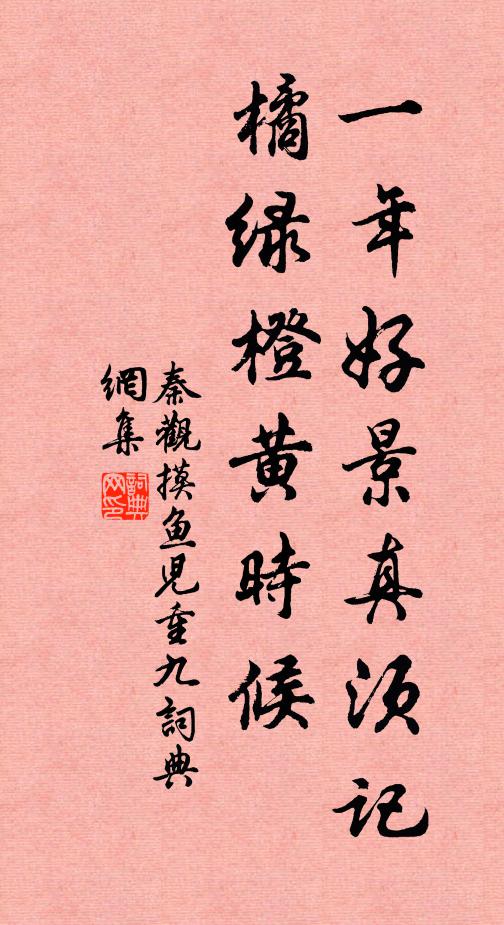 一年好景真须记
橘绿橙黄時候
秦觀摸鱼児重九詞典
網集
詞典
网印